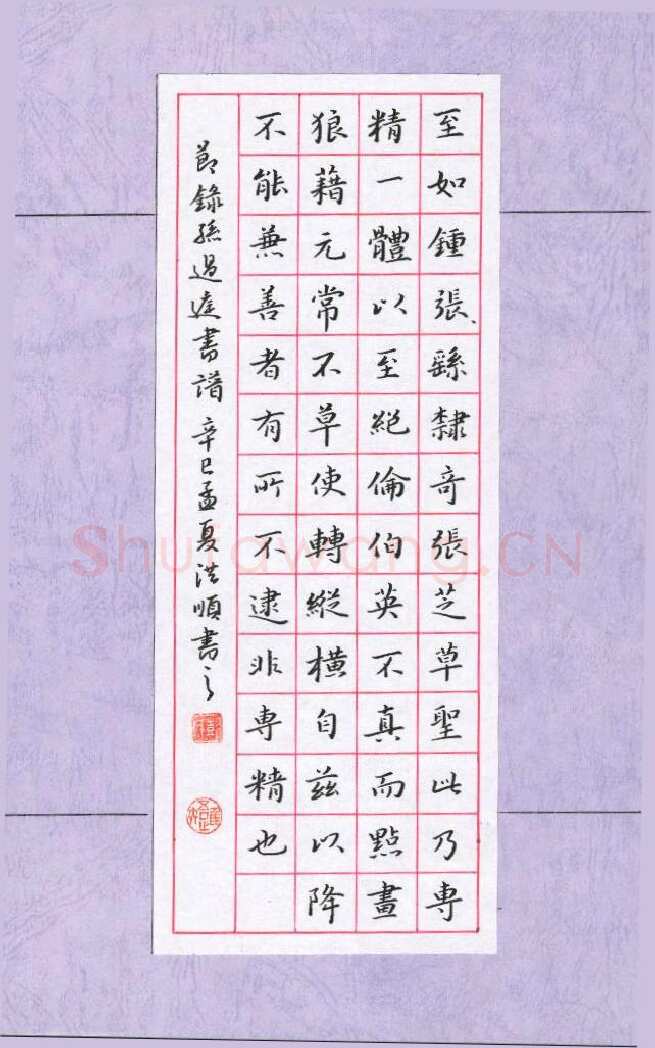 至如鍾張繇隸奇張芝草聖此乃專
精一體以至絕倫伯英不真而點畫
狼藉元常不草使轉縱橫自茲以降
不能兼善者有所不逮非專精也
節錄孫過庭書譜 辛巳孟夏洪順書之
Shufawang.CN